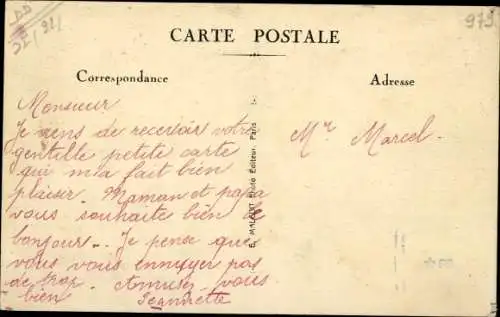 CARTE POSTALE
Correspondance
Monsieur
Je viens de recevoir votre
gentille petite carte
qui m'a fait bien
plaisir. Maman et papa
vous souhaite bien le
bonjour.. Je pense que
vous vous ennuyer pas
de trop. Amusez-vous
bien Jeannette
Éditeur, Paris
Adresse
Mr Marcel.
979